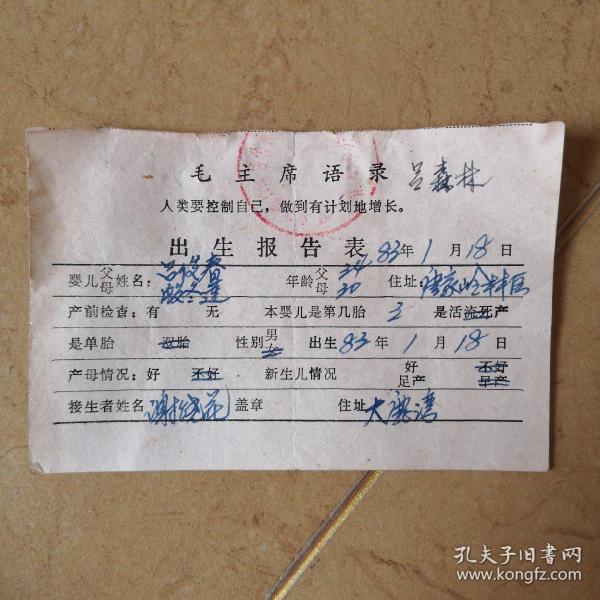 毛主席语录 吕森林
人类要控制自己，做到有计划地增长。
出生报告表 83年1月18日
婴儿父母姓名： 年龄父母 34 30 住址：
产前检查：有 无 本婴儿是第几胎 3 是活产 死产
是单胎 双胎 性别男女 出生83年1月18日
产母情况：好 不好 新生儿情况 好 足产 不好 早产
接生者姓名 盖章 住址 大 湾
孔夫子旧书网
www.kongfz.com